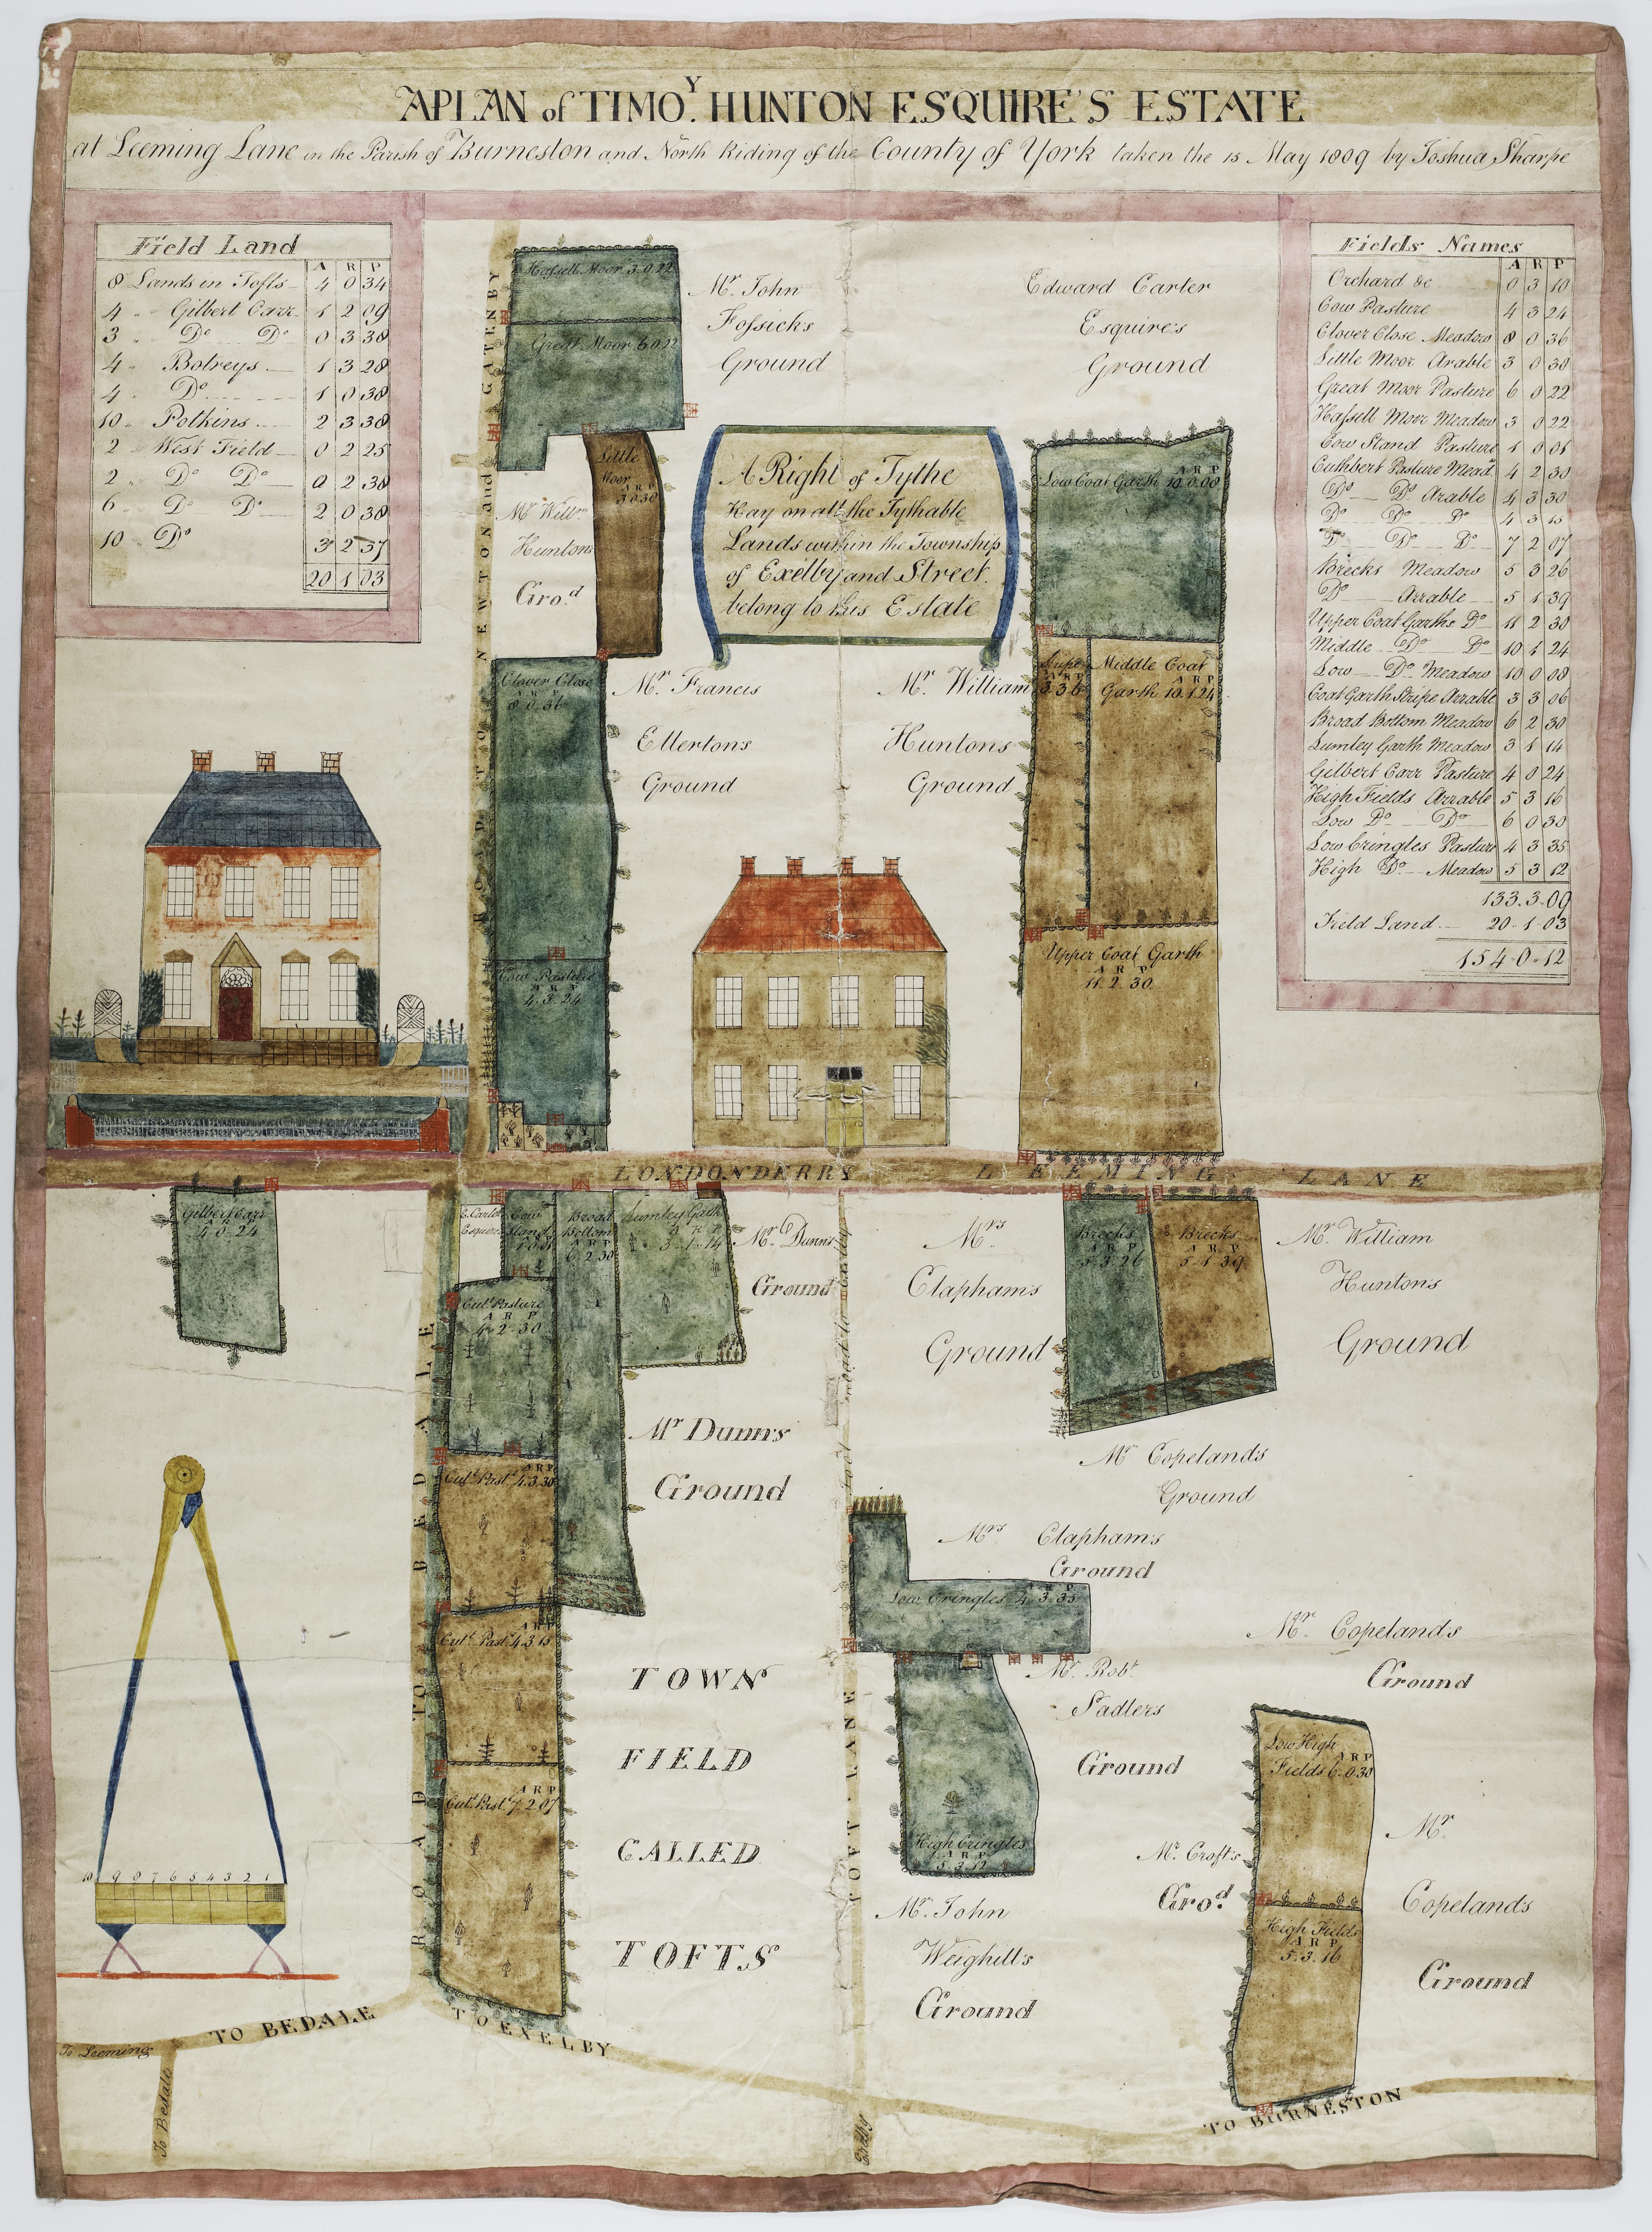 A PLAN of TIMO.Y HUNTON ESQUIRE'S ESTATE
at Leeming Lane in the Parish of Burneston and North Riding of the County of York taken the 15 May 1809 by Joshua Sharpe
Field Land
A R P
8 Lands in Tofts 4 0 34
4 " Gilbert Carr 1 2 09
3 " Do Do 0 3 38
4 " Botreys 1 3 28
4 " Do 1 0 38
10 " Potkins 2 3 38
2 " West Field 0 2 25
2 " Do Do 0 2 38
6 " Do Do 2 0 38
10 Do 3 2 37
20 1 03
Fields Names
A R P
Orchard &c 0 3 10
Cow Pasture 4 3 24
Clover Close Meadow 8 0 36
Little Moor Arable 3 0 30
Great Moor Pasture 6 0 22
Hafsell Moor Meadow 3 0 22
Cow Stand Pasture 1 0 01
Cuthbert Pasture Mead 4 2 30
Do Do Arable 4 3 30
Do Do Do 4 3 15
Do Do Do 7 2 07
Brecks Meadow 5 3 26
Do Arrable 5 1 39
Upper Coat Garths Do 11 2 30
Middle Do Do 10 1 24
Low Do Meadow 10 0 08
Coat Garth Stripe Arrable 3 3 06
Broad Bottom Meadow 6 2 30
Lumley Garth Meadow 3 1 14
Gilbert Carr Pasture 4 0 24
High Fields Arrable 5 3 16
Low Do Do 6 0 30
Low Cringles Pasture 4 3 35
High Do Meadow 5 3 12
133.3.09
Field Land 20-1-03
154-0-12
Hafsell Moor 3.0.22
Great Moor 6.0.22
Mr. John
Fofsicks
Ground
Edward Carter
Esquires
Ground
ROAD TO NEWTON and GATENBY
Little
Moor
A R P
3.0.30
Mr Willm
Huntons
Gro.d
A Right of Tythe
Hay on all the Tythable
Lands within the Township
of Exelby and Street
belong to this Estate
A R P
Low Coat Garth 10.0.08
Clover Close
A R P
8.0.36
Mr Francis
Ellertons
Ground
Mr. William
Huntons
Ground
Stripe
A R P
3.3.6
Middle Coat
A R P
Garth 10.1.24
Cow Pasture
A R P
4.3.24
Upper Coat Garth
A R P
11.2.30
LONDONDERRY LEEMING LANE
Gilbert Carr
A R P
4-0-24
E. Carter
Esquires
Cow
Stand
1 0 01
Broad
Bottom
A R P
6.2.30
Lumley Garth
A R P
3-1-14
Mr. Dunns
Ground
Mrs
Claphams
Ground
Brecks
A R P
5.3.26
Brecks
A R P
5.1.39
Mr. William
Huntons
Ground
Cut. Pasture
A R P
4-2-30
Mr Dunns
Ground
Mr Copelands
Ground
A R P
Cut. Past. 4.3.30
Mrs Claphams
Ground
A R P
Low Cringles 4.3.35
A R P
Cut. Past. 4.3.15
Mr Copelands
Ground
Mr. Robt
Sadlers
Ground
TOWN
FIELD
CALLED
TOFTS
A R P
Cut. Past. 7.2.07
Low High
A R P
Fields 6.0.30
High Cringles
A R P
5.3.12
Mr. Crofts
Gro.d
Mr
Copelands
Ground
Mr. John
Weighill's
Ground
High Fields
A R P
5.3.16
ROAD TO BEDALE
TOFT LANE
10 9 8 7 6 5 4 3 2 1
TO BEDALE
TO EXELBY
To Leeming
To Bedale
TO BURNESTON